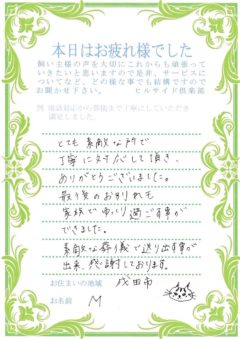 本日はお疲れ様でした
飼い主様の声を大切にこれからも頑張って
いきたいと思いますので是非、サービスに
ついてなど、どの様な事でも結構ですので
お聞かせ下さい。 ヒルサイド倶楽部
例 電話対応から葬儀まで丁寧にしていただき
満足しました。
とても素敵な所で
丁寧に対応して頂き、
ありがとうございました。
最後のお別れも
家族でゆっくり過ごす事が
できました。
素敵な葬儀で送り出す事が
出来、感謝しております。
お住まいの地域 成田市
お名前 M